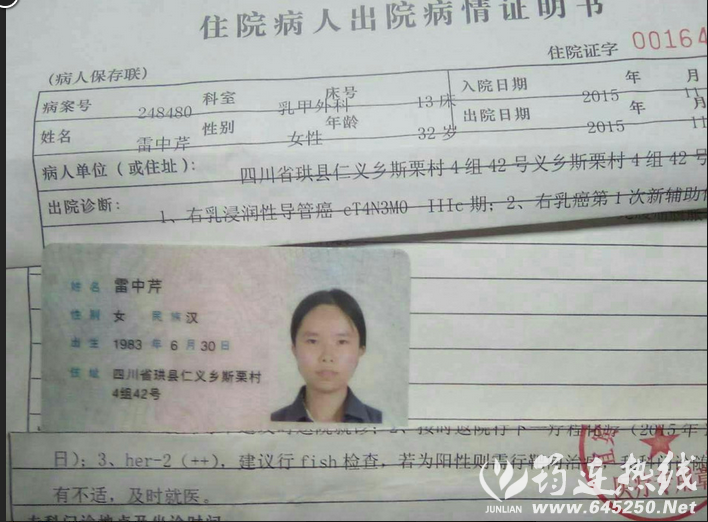 住院病人出院病情证明书
住院证字 00164
(病人保存联)
病案号 248480 科室 乳甲外科 床号 13床 入院日期 2015 年 11 月
姓名 雷中芹 性别 女性 年龄 32岁 出院日期 2015 年 11 月
病人单位(或住址): 四川省珙县仁义乡斯栗村4组42号义乡斯栗村4组42号
出院诊断: 1、右乳浸润性导管癌 cT4N3M0 IIIc期;2、右乳癌第1次新辅助
姓名 雷中芹
性别 女 民族 汉
出生 1983 年 6 月 30 日
住址 四川省珙县仁义乡斯栗村
4组42号
日);3、her-2(++),建议行fish检查,若为阳性则需行
有不适,及时就医。
专科门诊地点及出诊时间
筠连热线
JUNLIAN www.645250.net